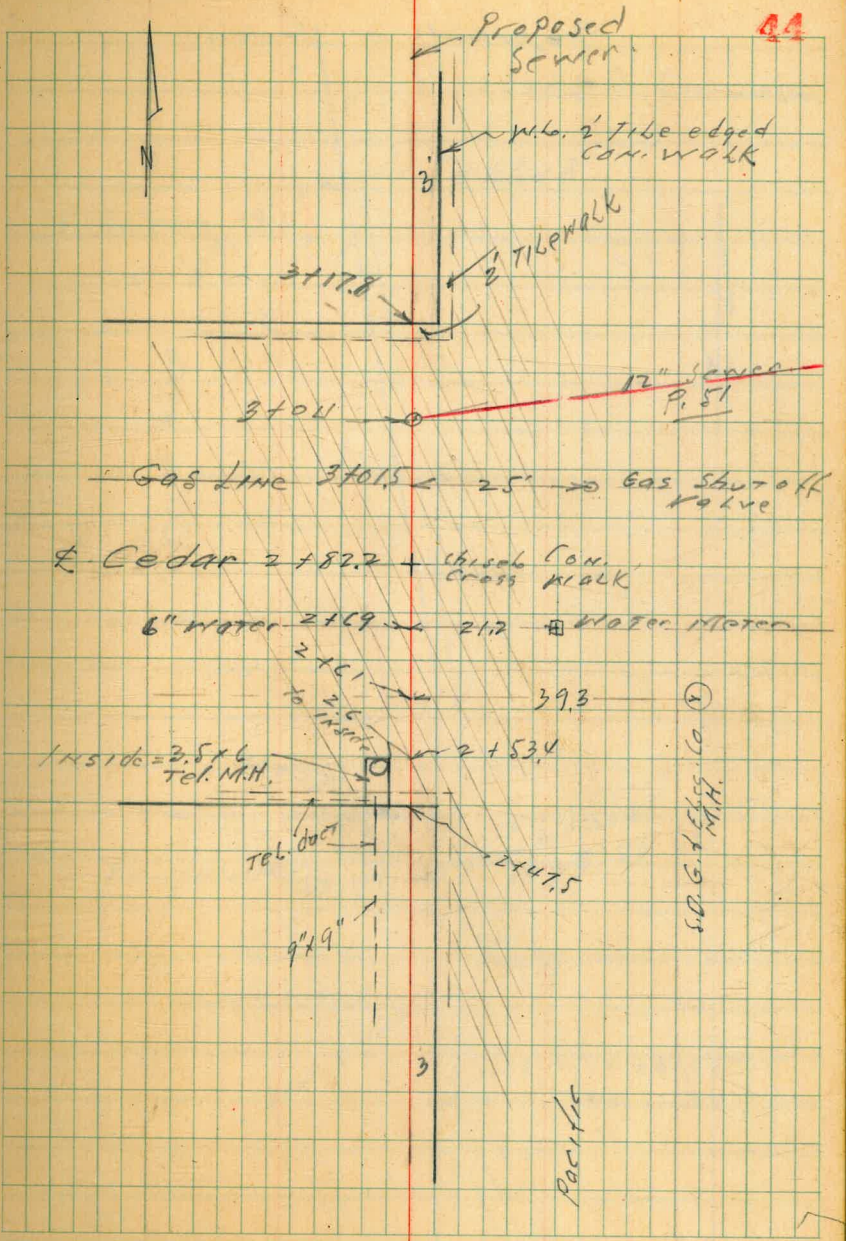 44
Proposed
Sewer.
N
W.L. 2' Tile edged
Con. Walk
3'
2' Tile walk
3+17.8
12" Sewer
P. 51
3+04
Gas Line 3+01.5 25' Gas Shut off
Valve
℄ Cedar 2+82.2 + Chisel Con.
Cross Walk
6" Water 2+69 21.2 Water Meter
2+61
39.3
2.6
inside
2+53.4
Inside = 3.5x6
Tel. M.H.
S.D.G. & Elec. Co.
M.H.
Tel. duct
2+47.5
9"x9"
3
Pacific